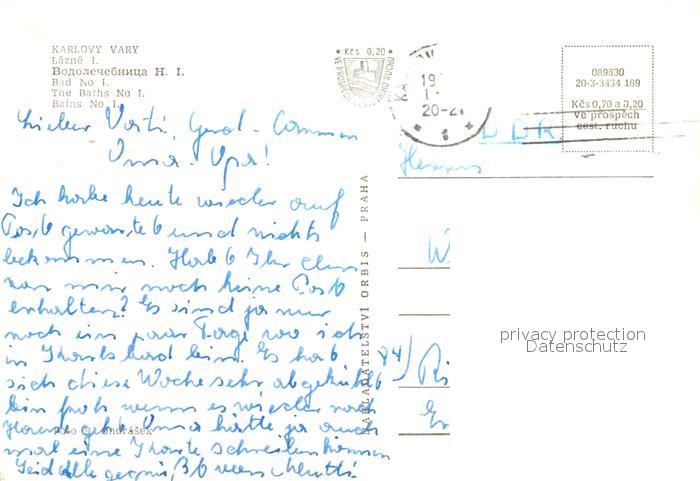 KARLOVY VARY
Lázně I.
Водолечебница Н. I.
Bad No I.
The Baths No I.
Bains No I.
Kčs 0,20
VE PROSPĚCH CESTOVNÍHO RUCHU
19
20-21
1
089830
20-3-3434 169
Kčs 0,70 a 0,20
ve prospěch
cest. ruchu
DDR
Herrn
Lieber Vati, Gerd. Carmen
Oma. Opa!
Ich habe heute wieder auf
Post gewartet und nichts
bekommen. Habt Ihr denn
von mir noch keine Post
erhalten? Es sind ja nur
noch ein paar Tage wo ich
in Karlsbad bin. Es hat
sich diese Woche sehr abgekühlt
bin froh wenn es wieder nach
Hause geht. Oma hätte ja auch
mal eine Karte schreiben können
Seid alle gegrüßt von Mutti
NAKLADATELSTVÍ ORBIS — PRAHA
W
84) Ri
Er
Ondrášek
privacy protection
Datenschutz